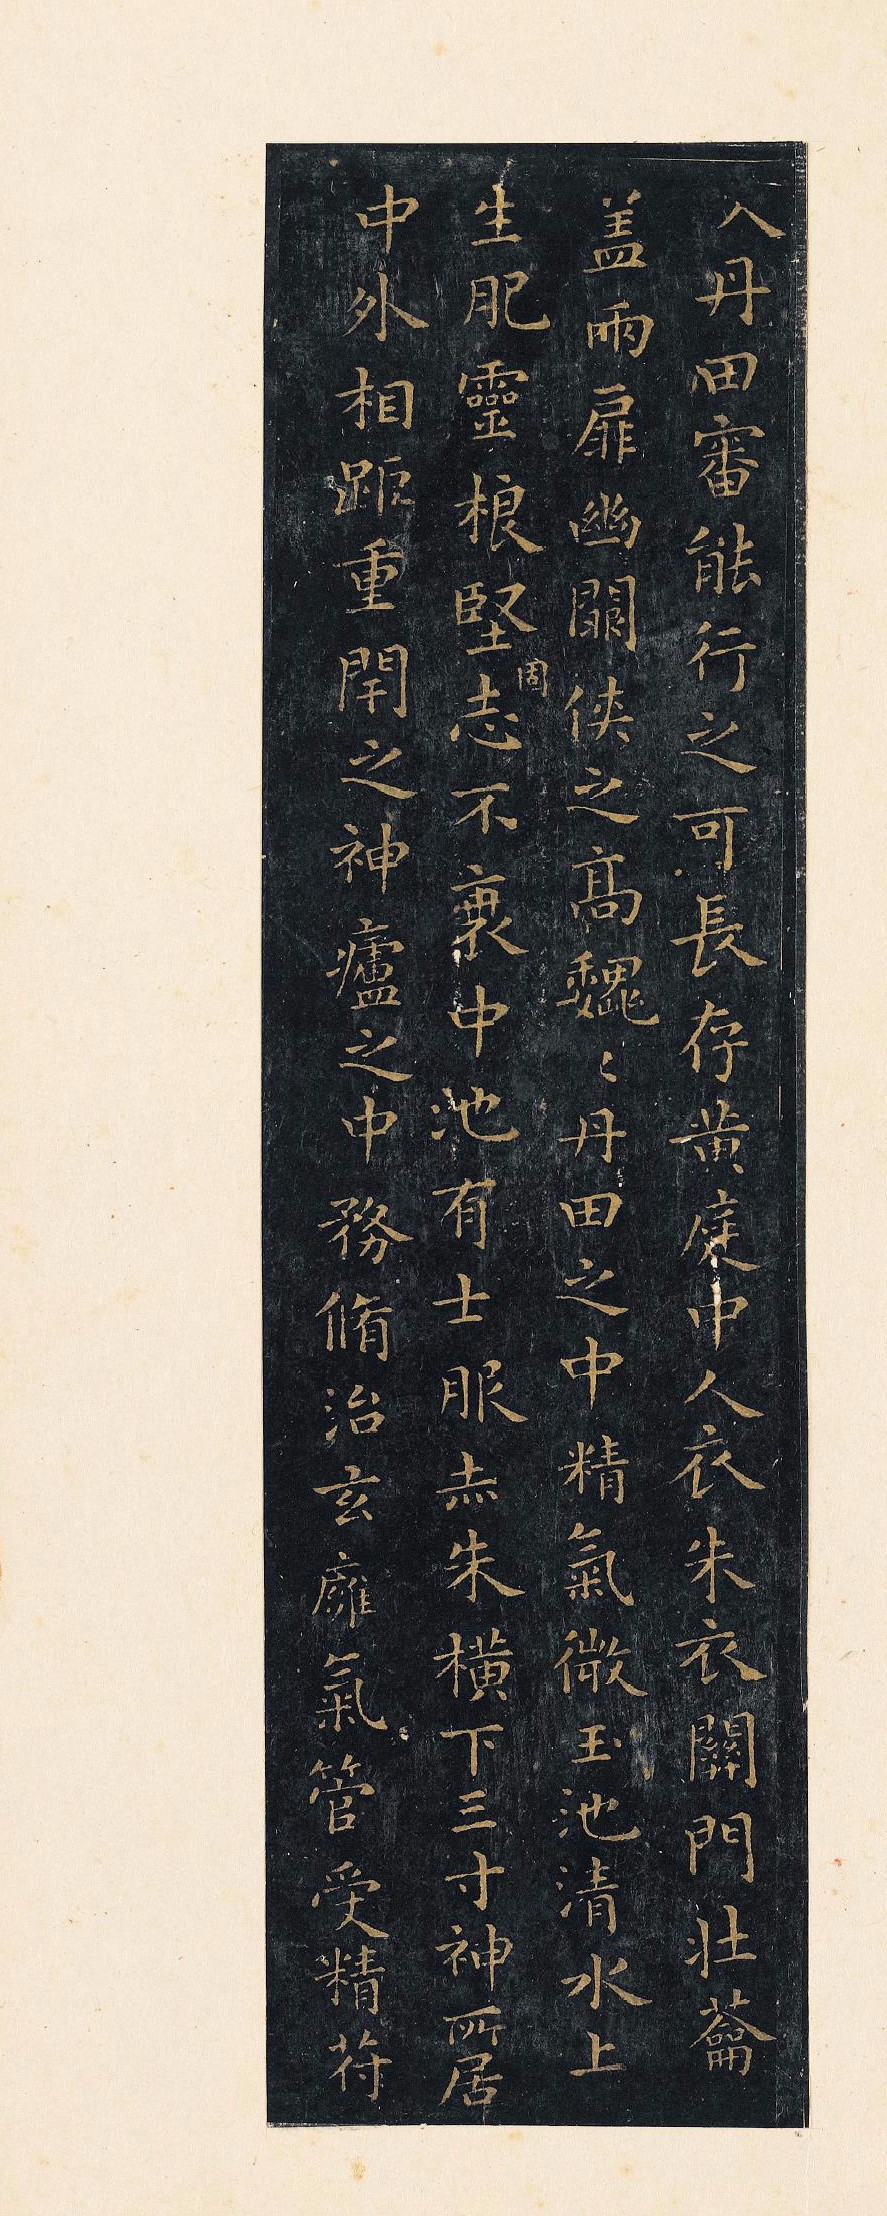 入丹田審能行之可長存黄庭中人衣朱衣關門壯蘥
盖兩扉幽關俠之高魏〻丹田之中精氣微玉池清水上
生肥靈根堅固志不衰中池有士服赤朱横下三寸神所居
中外相距重閇之神廬之中務脩治玄廱氣管受精苻